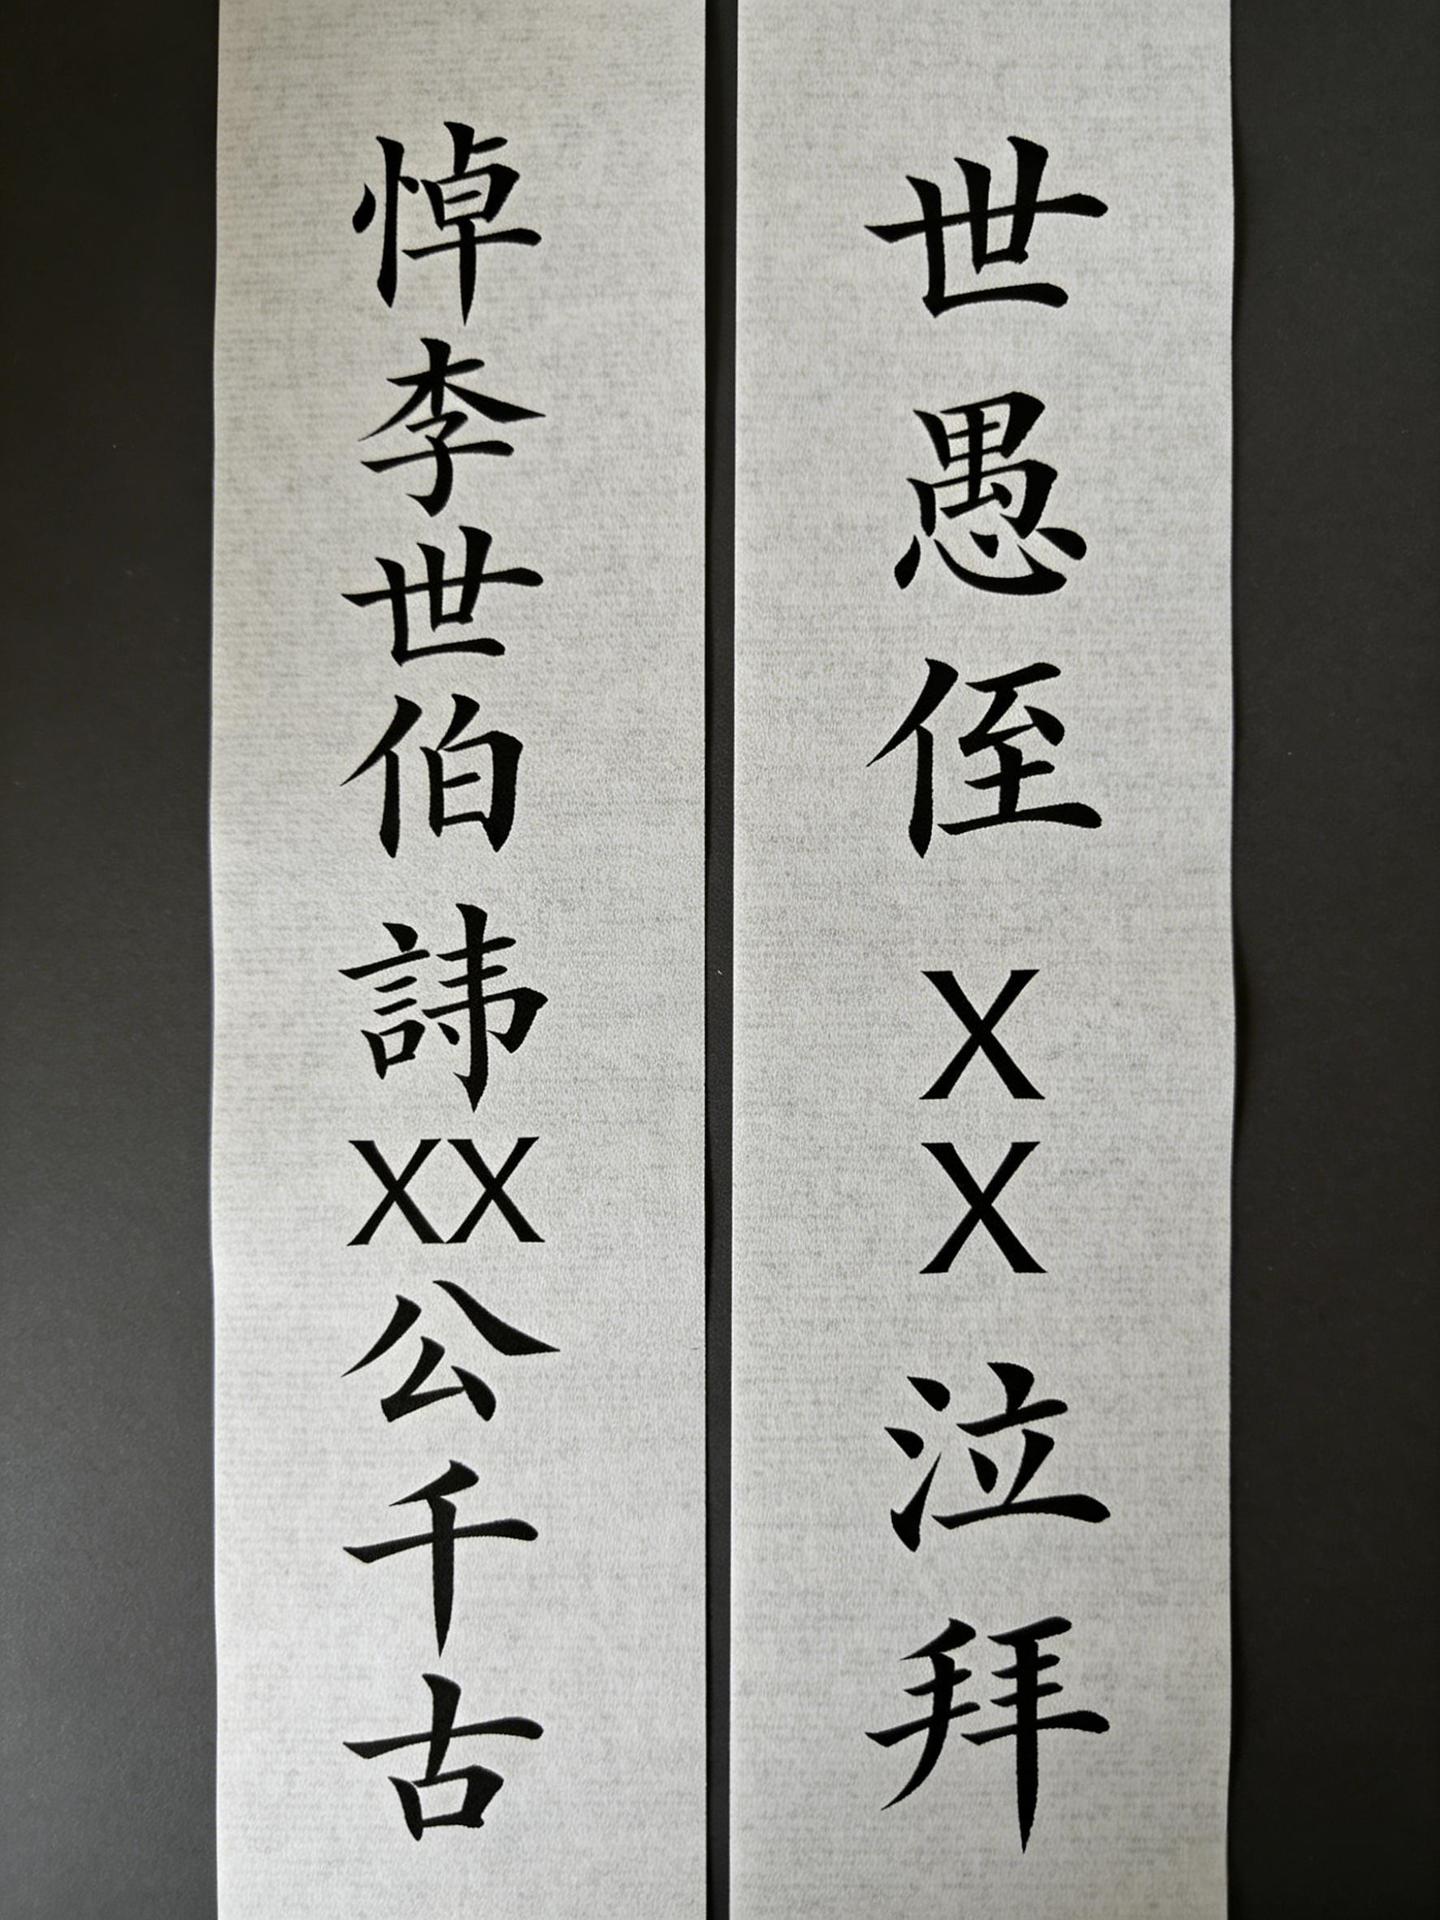 悼李世伯諱XX公千古
世愚侄XX泣拜